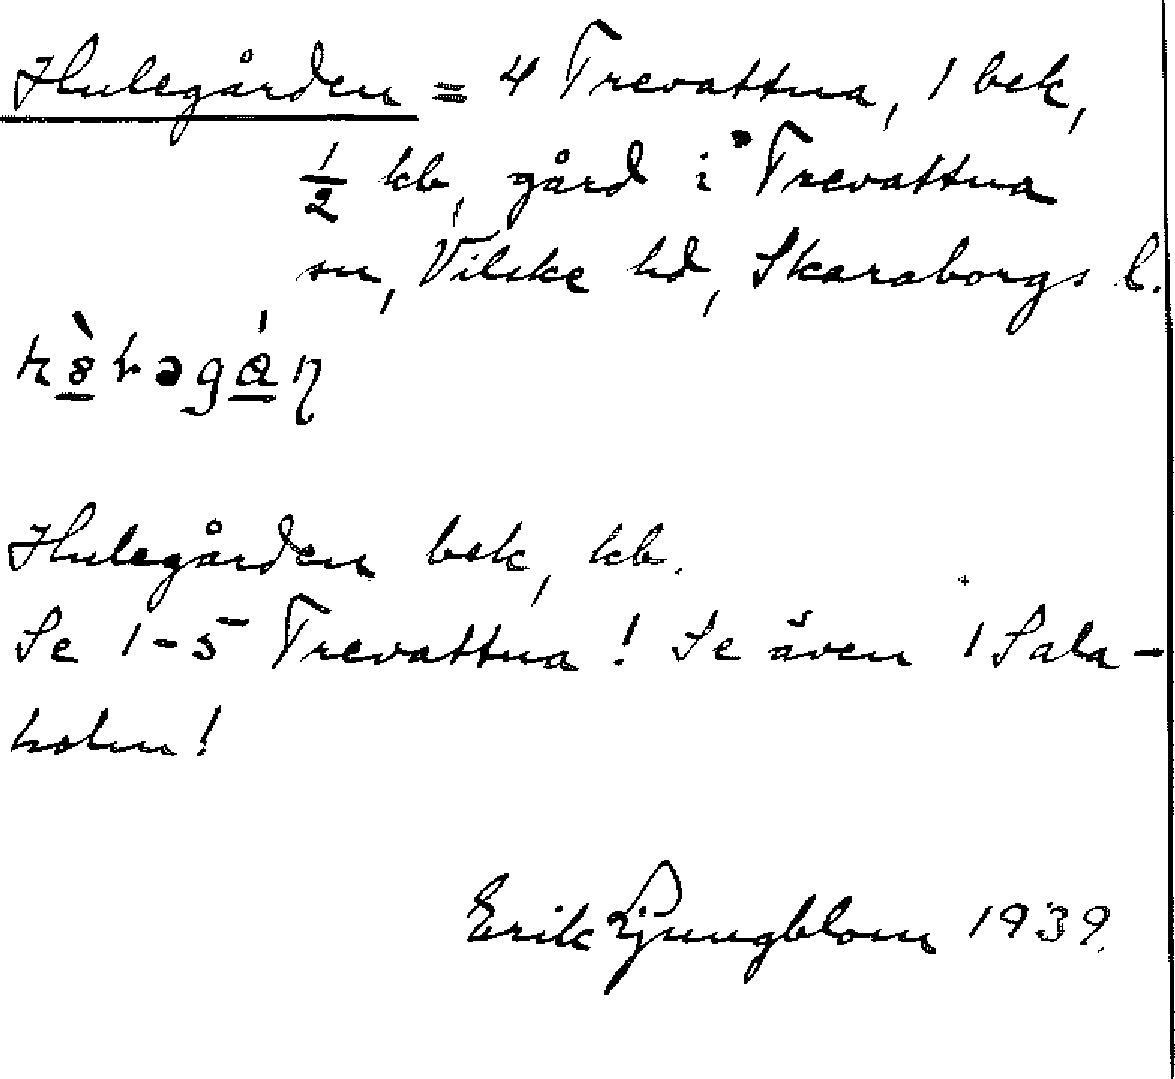 Hulegården = 4 Trevattna, 1 bek,
1/2 kb, gård i Trevattna
sn, Vilske hd, Skaraborgs l.
Hulegården bek, kb.
Se 1-5 Trevattna! Se även 1 Sala-
holm!
Erik Ljungblom 1939.